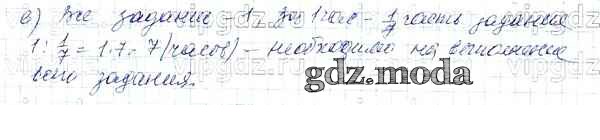 в) Все задание 1, за 1 час - 1/7 часть задания
1 : 1/7 = 1 · 7 = 7 (часов) – необходимо на выполнение
всего задания.
gdz.moda